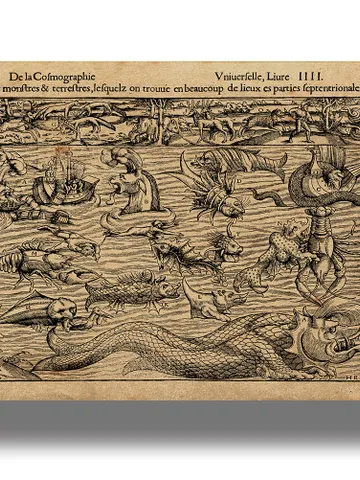 De la Cosmographie Vniuerselle, Liure IIII.
monstres & terrestres, lesquelz on trouue en beaucoup de lieux es parties septentrionale